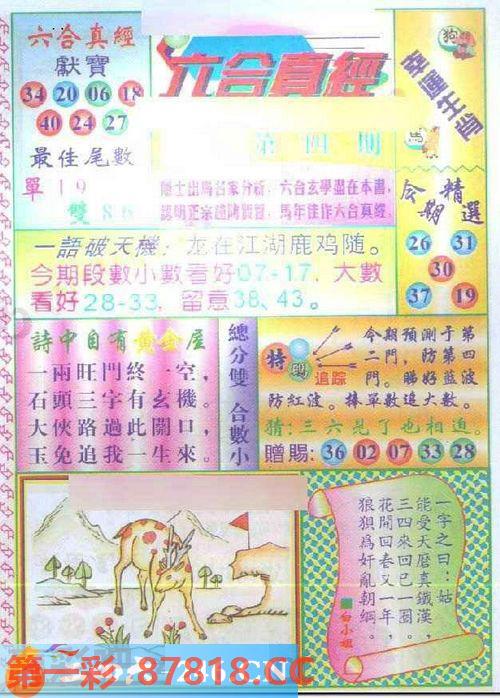 六合真經
獻寶
34 20 06 18
40 24 27
最佳尾數
單 1 9
雙 8 6
六合真經
第四期
隱士出馬名家分祈，六合玄學盡在本書，
認明正宗趙陳賀賀，馬年佳作六合真經。
狗
幸運生肖
馬
今期精選
26 31
30
37 19
一語破天機：龙在江湖鹿鸡随。
今期段數小數看好07-17，大數
看好28-33，留意38、43。
詩中自有黄金屋
一兩旺門終一空，
石頭三字有玄機。
大俠路過此關口，
玉兔追我一生來。
總分雙 合數小
特碼
追踪
今期預測于第
二門，防第四
門。睇好藍波
防紅波。捧單數追大數。
猜：三六見了也相迫。
贈賜：36 02 07 33 28
一字之曰：姑
能受天磨真鐵漢，
三四來回已一圈，
花開回春又一年，
狼狽爲奸亂朝綱。
白小姐
第一彩 87818.CC